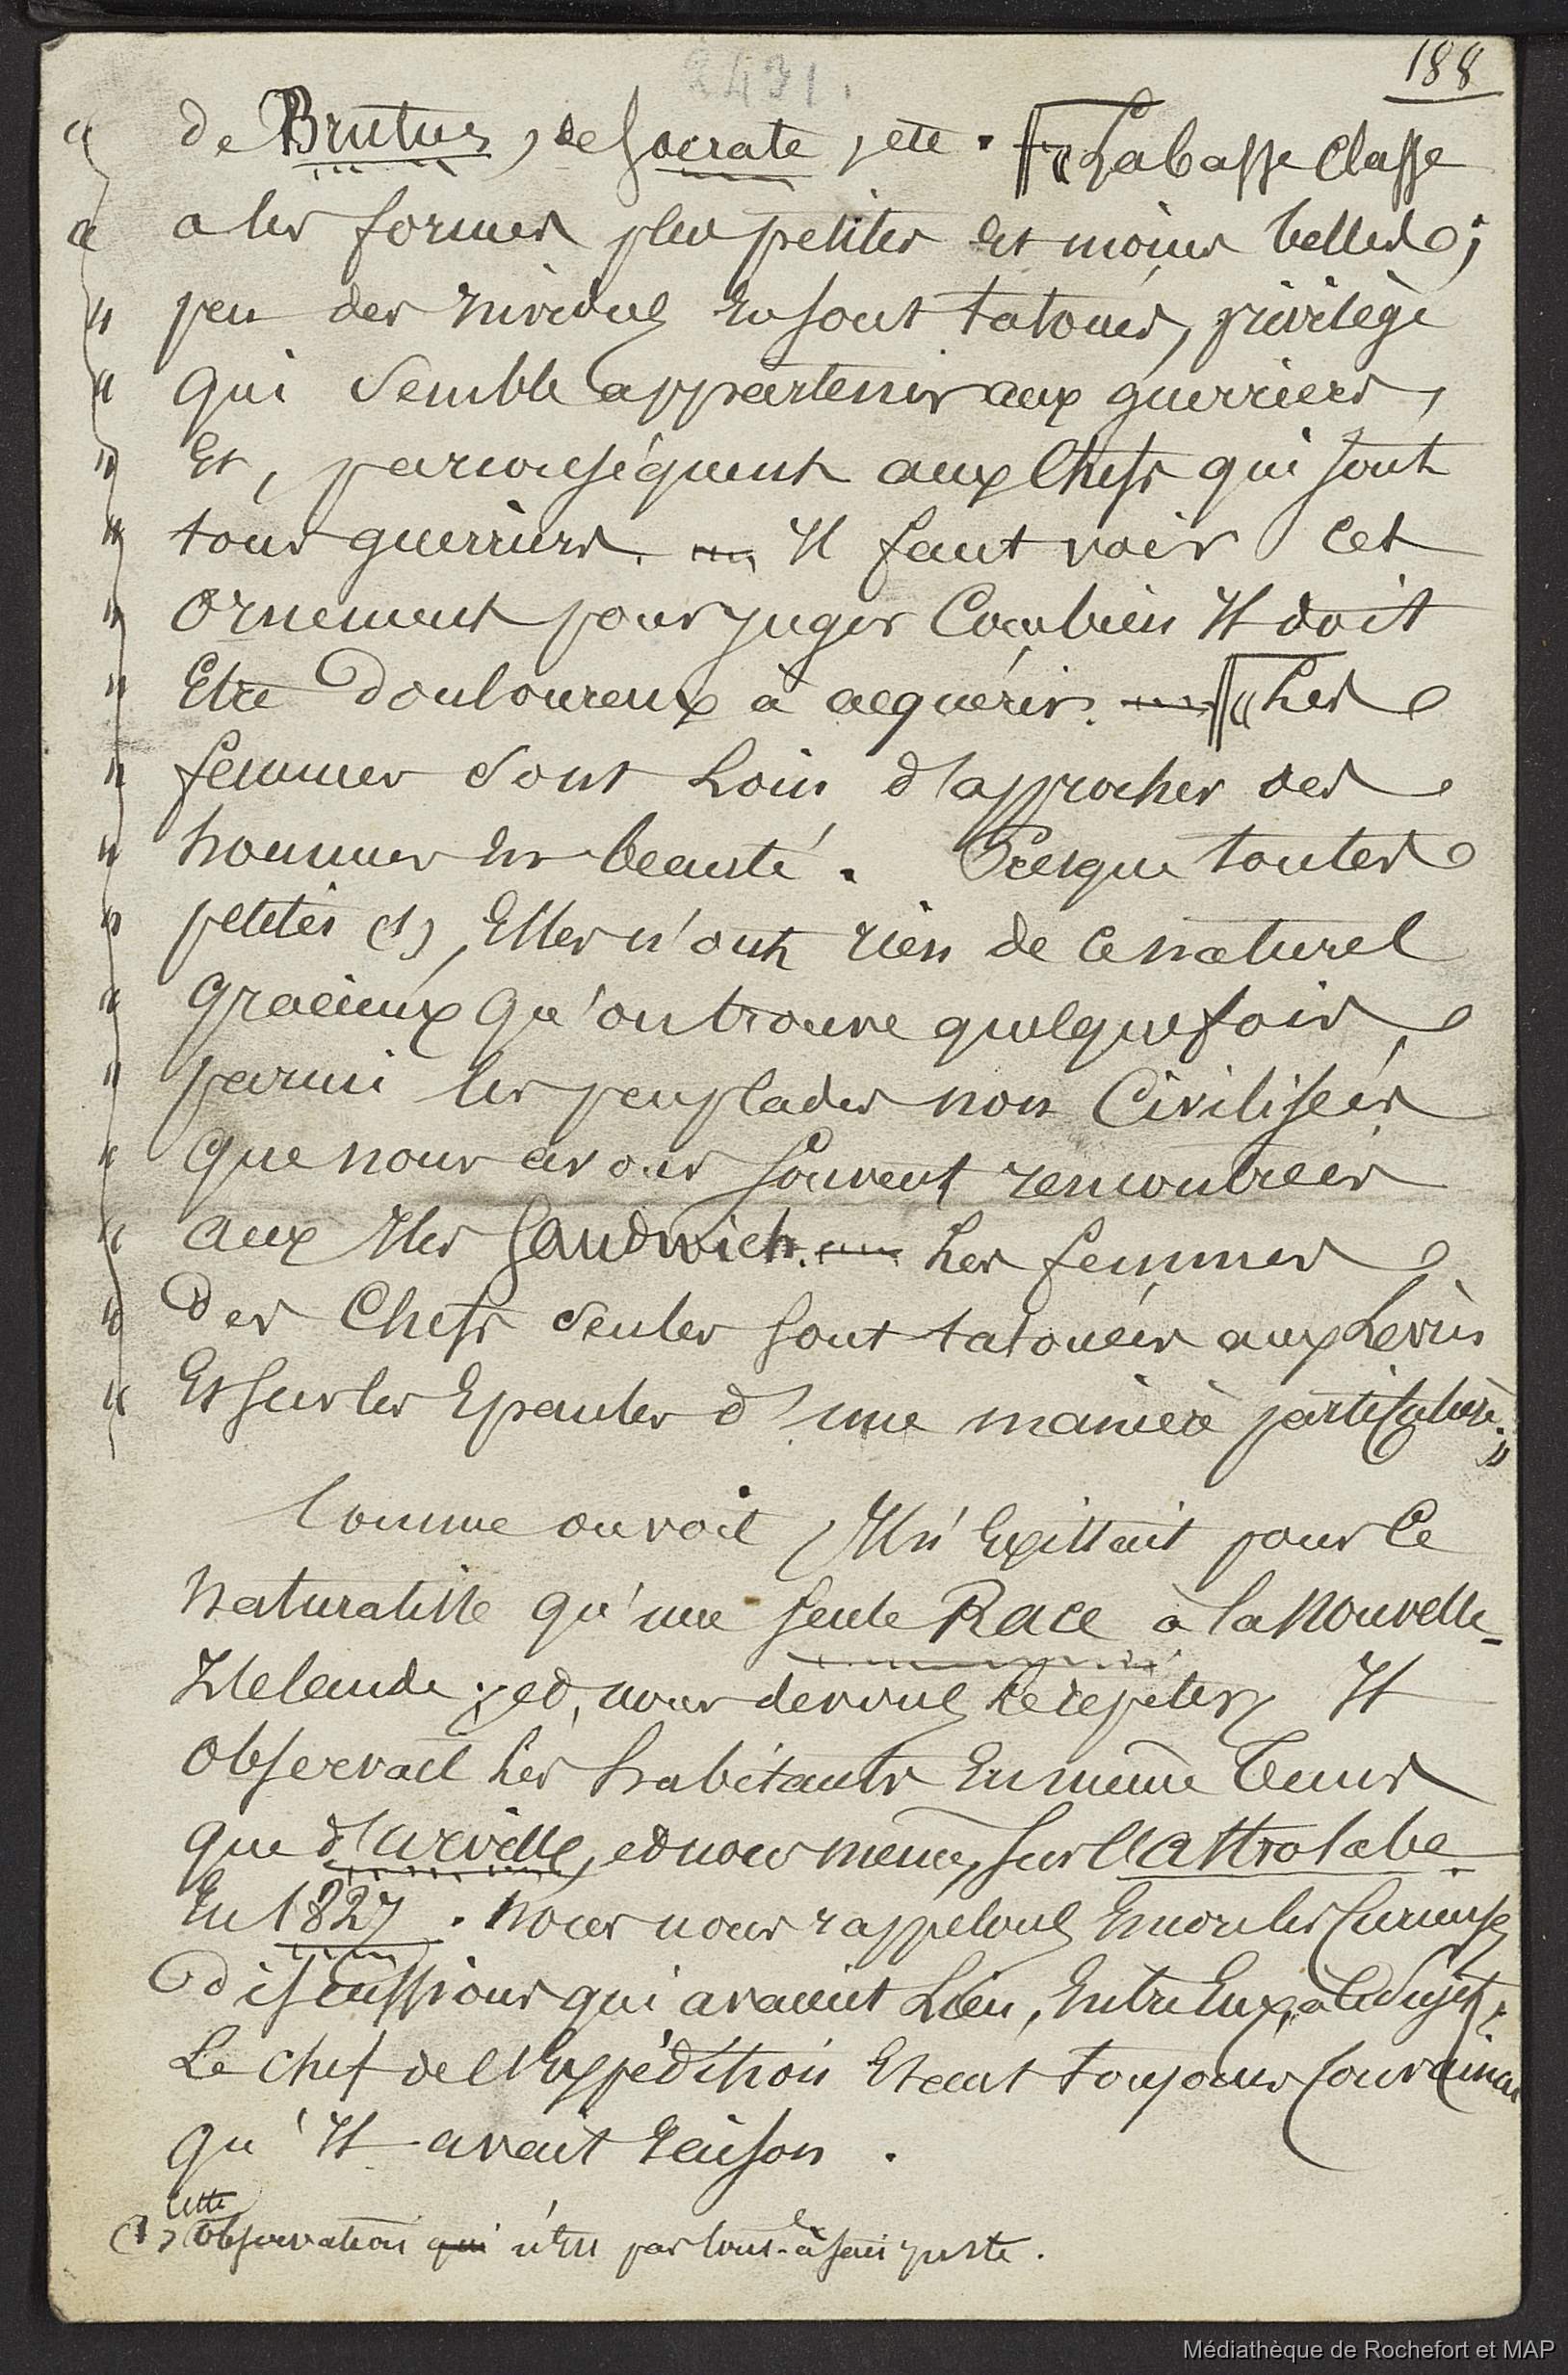 2431.
188
" de Brutus, de Socrate, etc. " La basse Classe
" a les formes plus petites et moins belles ;
" peu des nividus en sont tatoués, privilège
" qui semble appartenir aux guerriers,
" Et, par conséquent aux Chefs qui sont
" tous guerriers. — Il faut voir cet
" ornement pour juger Combien Il doit
" Etre douloureux à acquérir. — " Les
" femmes sont Loin d'approcher des
" hommes en beauté. Presque toutes
" petites (1), Elles n'ont rien de ce naturel
" gracieux qu'on trouve quelquefois
" parmi les peuplades non Civilisées
" que nous avons souvent rencontrées
" aux Iles Sandwich. — Les femmes
" des Chefs seules sont tatouées aux Lèvres
" Et sur les Epaules d'une manière particulière. "
Comme on voit, Il n'Existait pour le
naturaliste qu'une seule Race à la Nouvelle-
Zélande ; et, nous devons le répéter, Il
observait les habitants En même tems
que d'Urville, et nous même, sur l'Astrolabe
En 1827. Nous nous rappelons Encore les curieuses
discussions qui avaient Lieu, Entre Eux, à ce sujet.
Le chef de l'Expédition Etait toujours convaincu
qu'Il avait raison.
(1) Cette observation qui n'est pas tout-à-fait juste.
Médiathèque de Rochefort et MAP